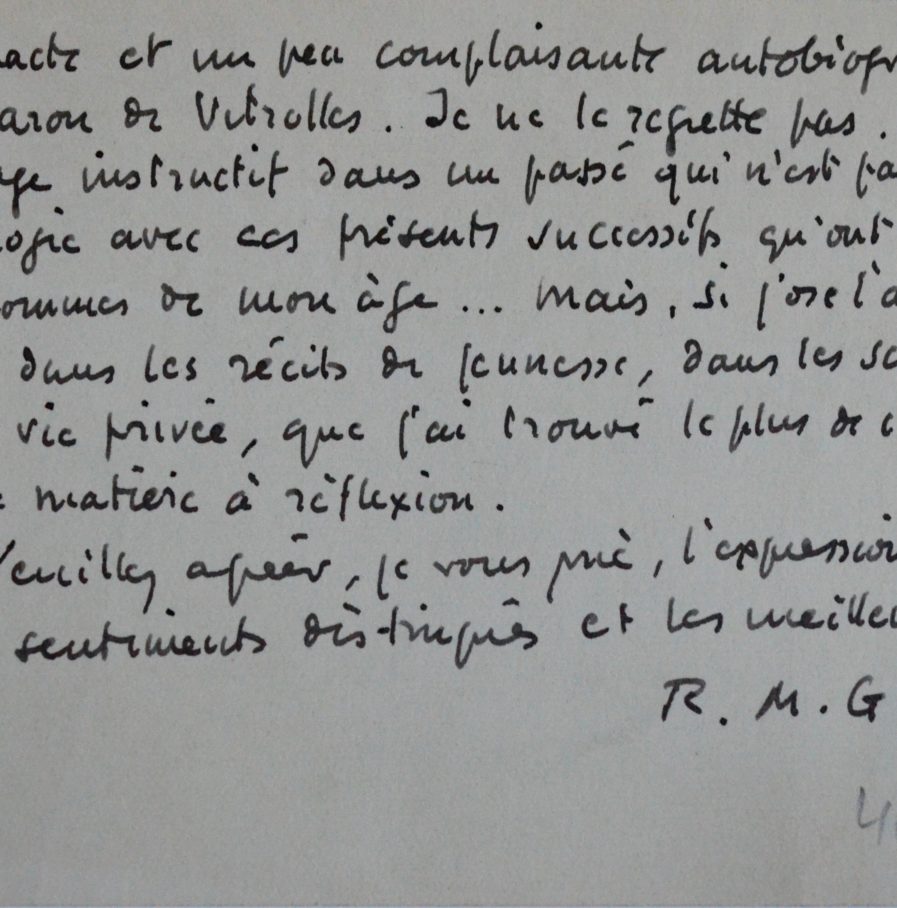 acte et un peu complaisante autobiogr
aron de Vitrolles. Je ne le regrette pas.
ge instructif dans un passé qui n'est pa
ogie avec ces présents successifs qu'ont
ommes de mon âge... Mais, si j'ose l'a
dans les récits de jeunesse, dans les sc
vie privée, que j'ai trouvé le plus de c
e matière à réflexion.
Veuillez agréer, je vous prie, l'expression
sentiments distingués et les meilleu
R. M. G
4